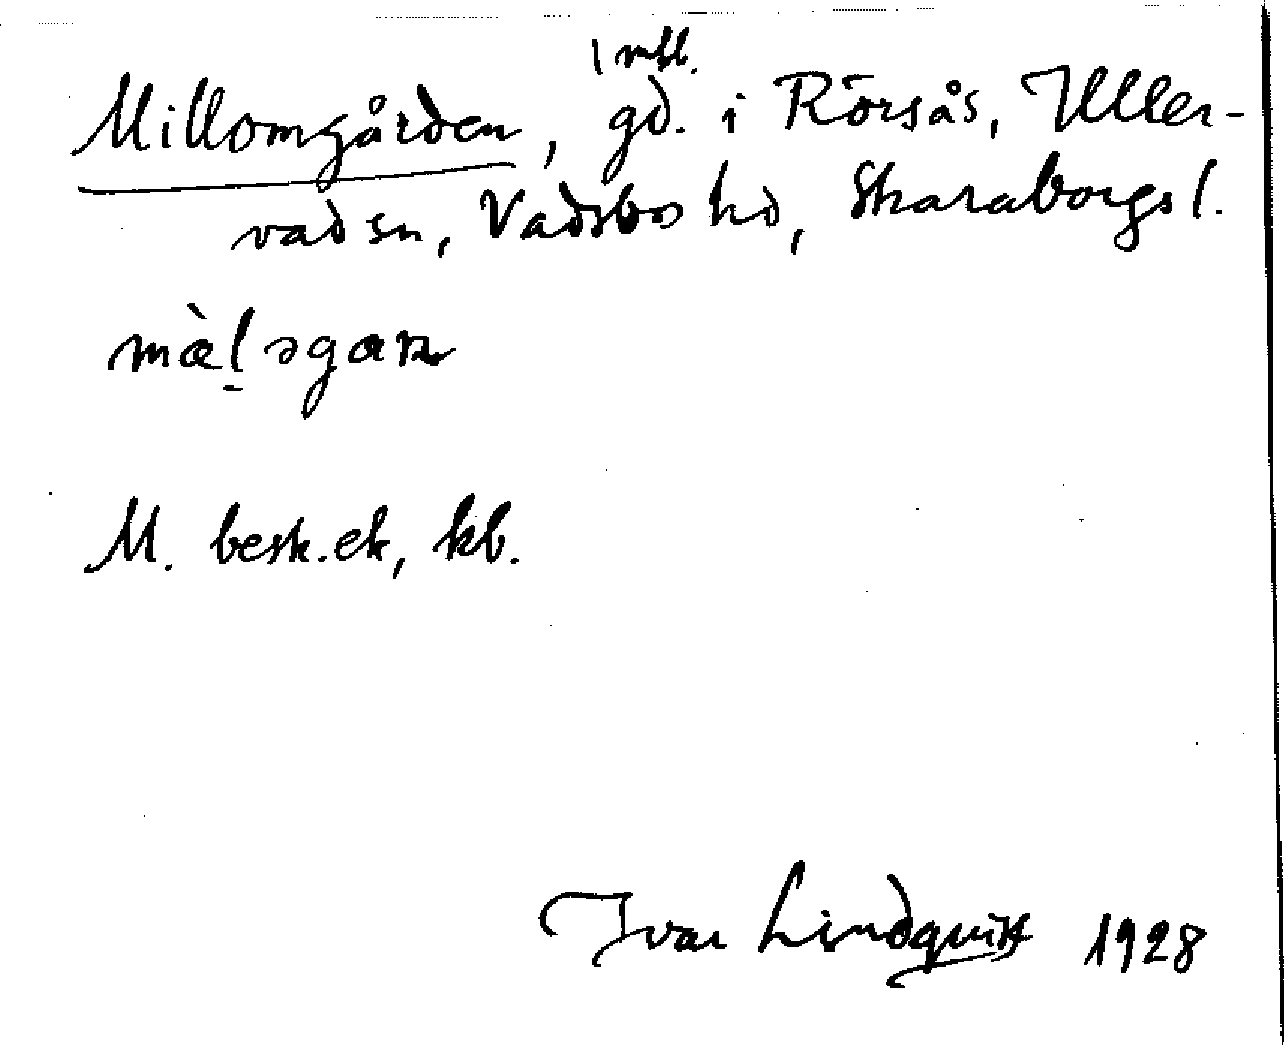 1 mtl.
Millomgården, gd. i Rörsås, Uller-
vad sn, Vadsbo hd, Skaraborgs l.
mæ̀l̠əgaɳ
M. besk. ek, kb.
Ivar Lindquist 1928